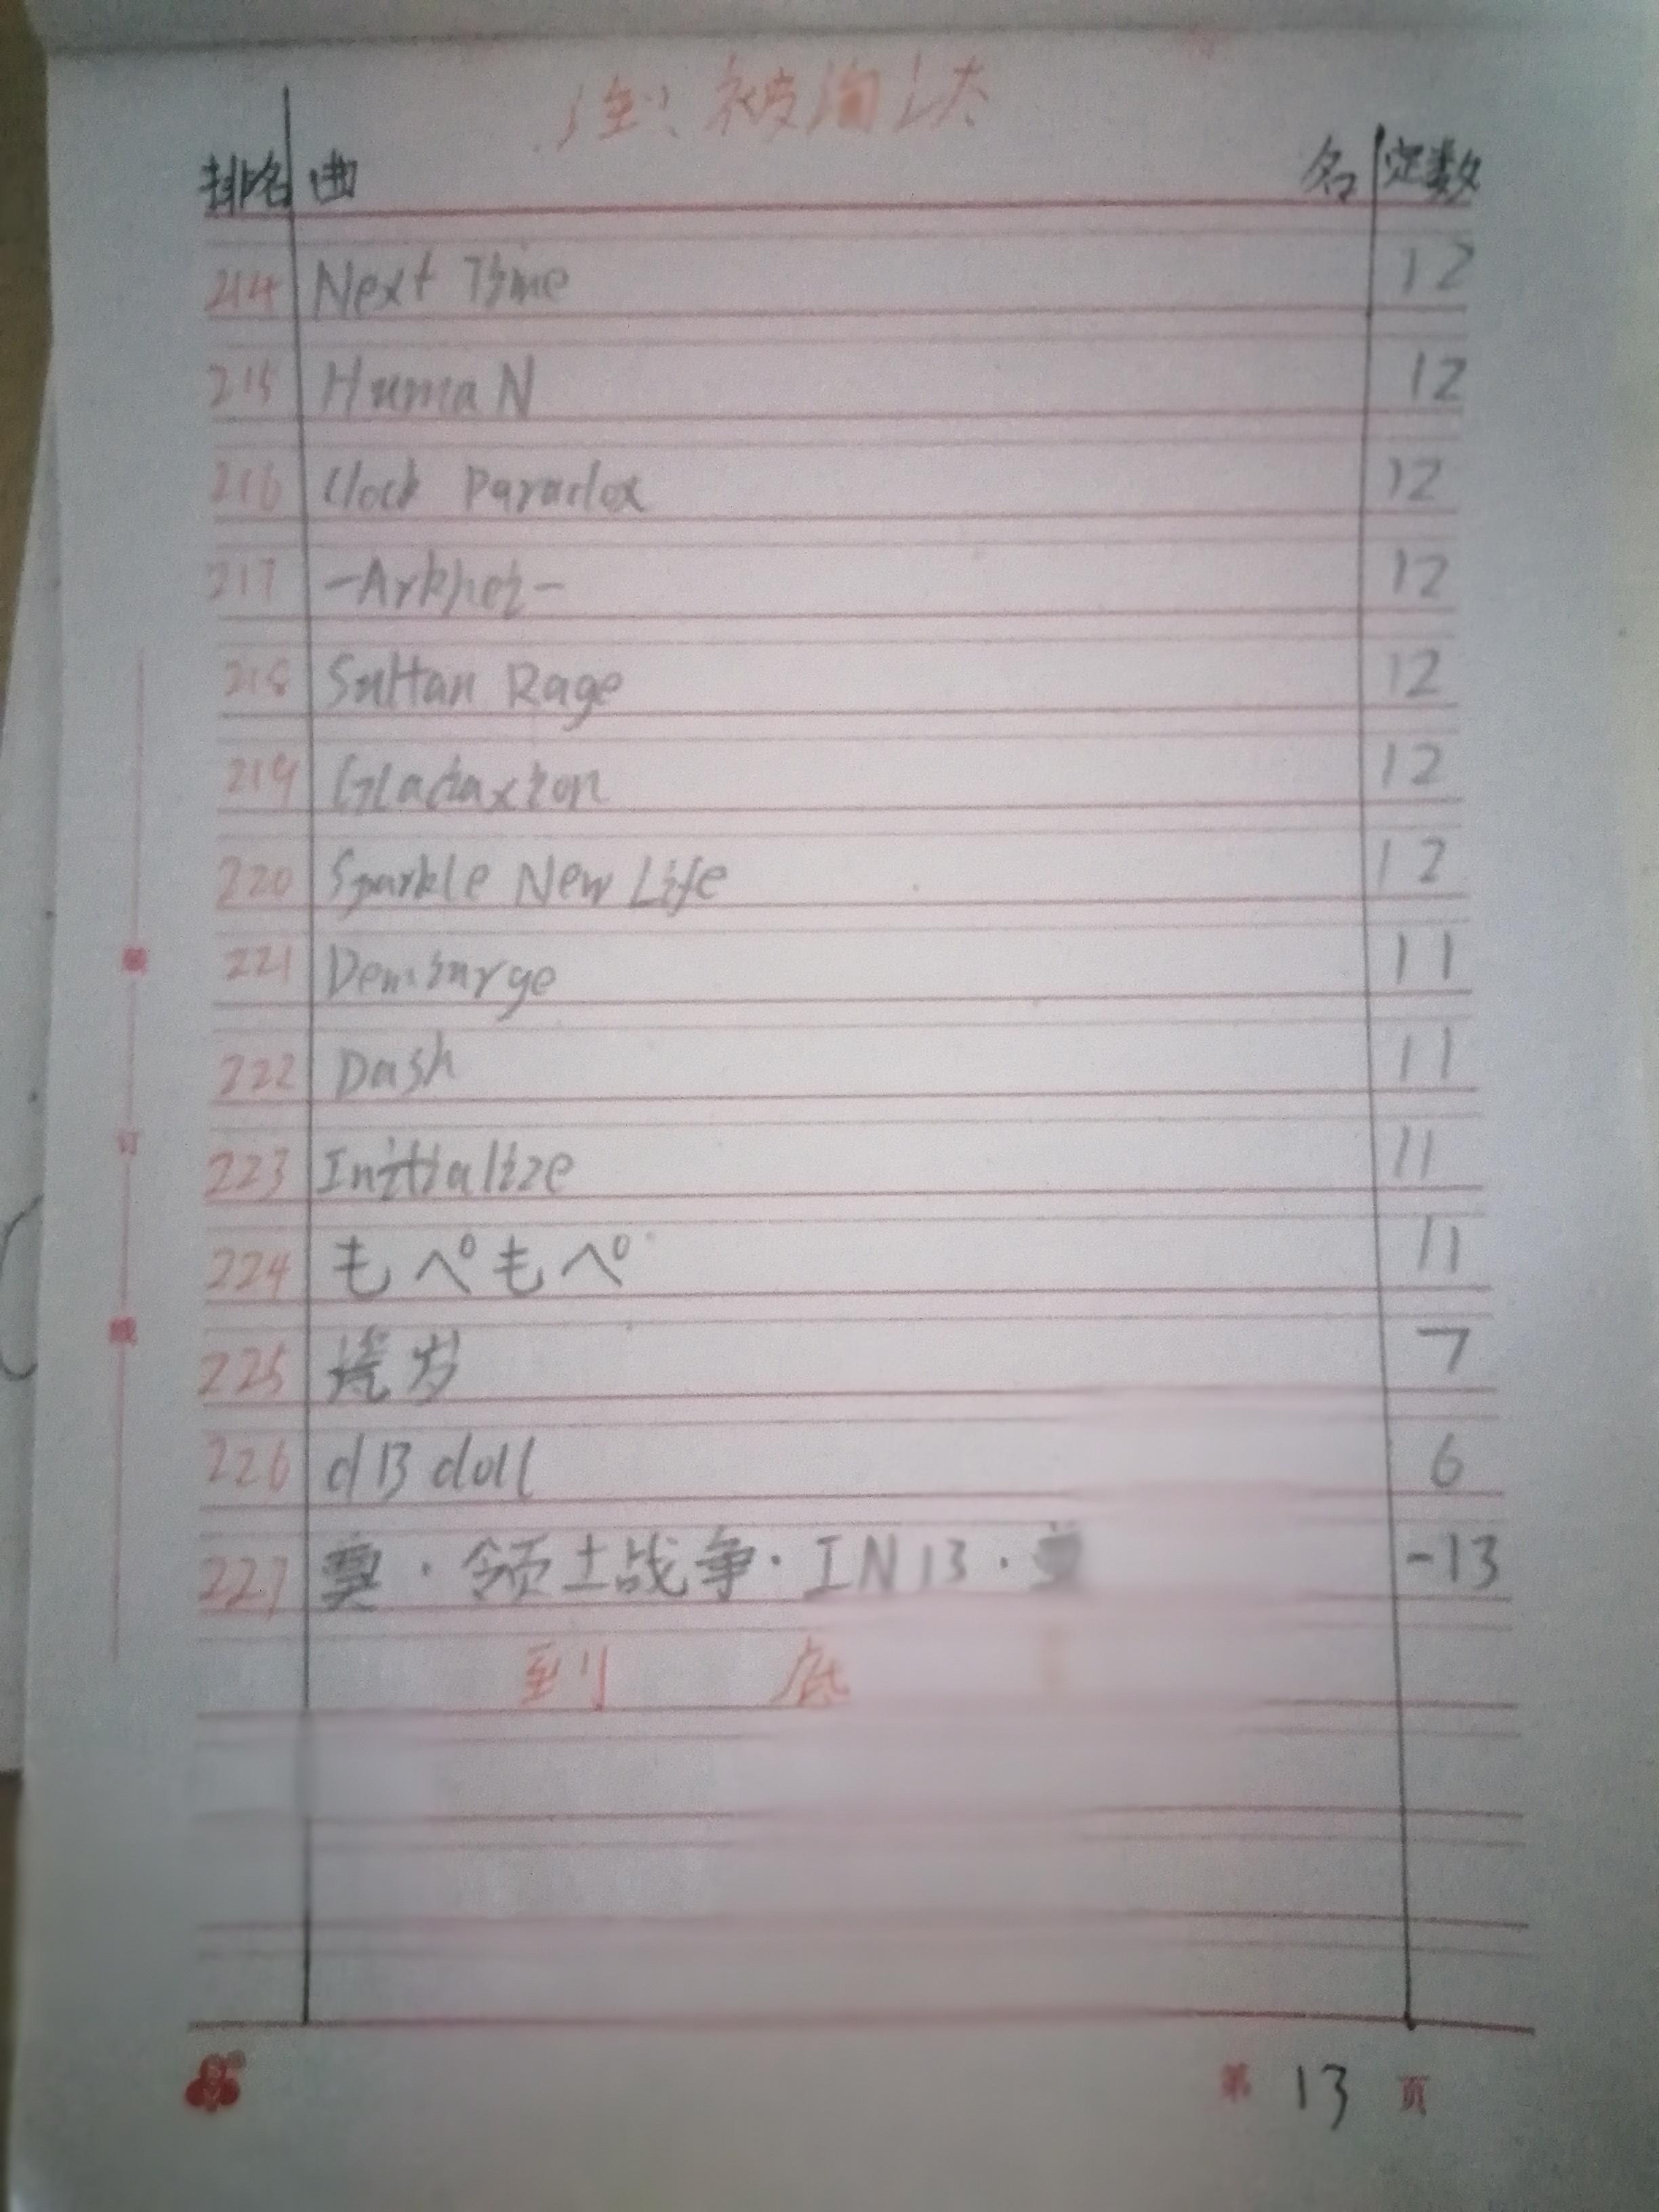 被淘汰
排名 曲 名 定数
214 Next Time 12
215 HumaN 12
216 Clock Paradox 12
217 -Arkhei- 12
218 Sultan Rage 12
219 Gladaxion 12
220 Sparkle New Life 12
221 Demiurge 11
222 Dash 11
223 Initialize 11
224 もぺもぺ 11
225 烧岁 7
226 dB doll 6
227 · 领土战争 · IN13 · -13
到 底
装
订
线
第 13 页